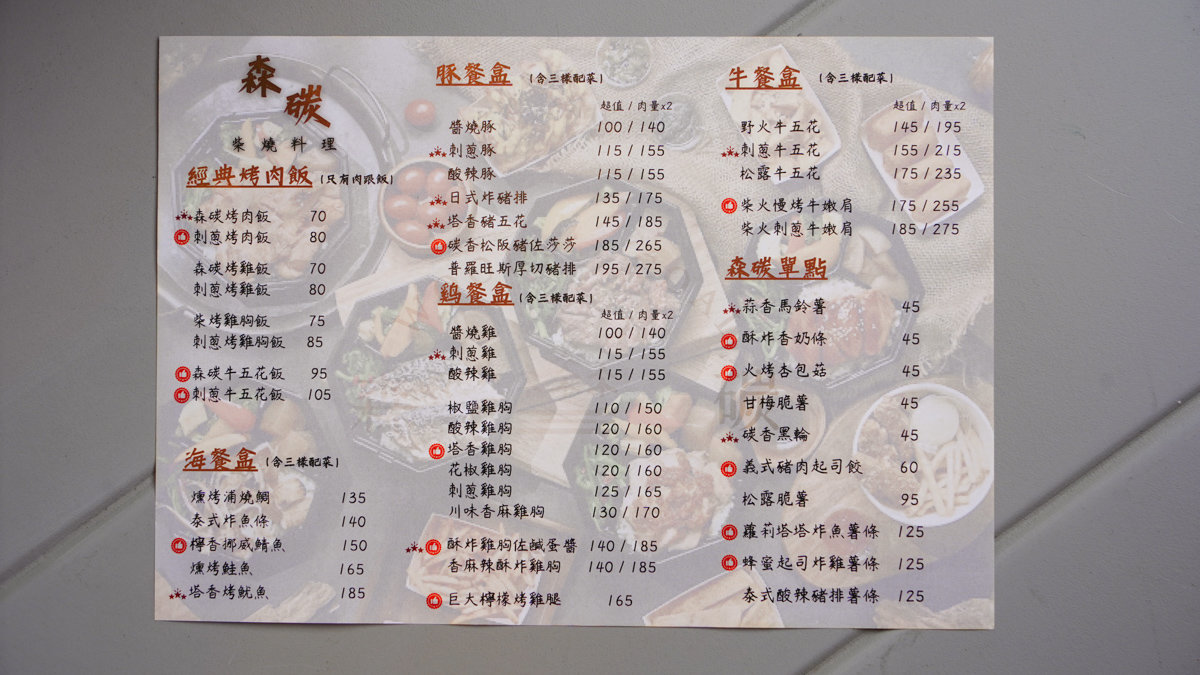 森碳
柴燒料理
經典烤肉飯（只有肉跟飯）
森碳烤肉飯 70
刺蔥烤肉飯 80
森碳烤雞飯 70
刺蔥烤雞飯 80
柴烤雞胸飯 75
刺蔥烤雞胸飯 85
森碳牛五花飯 95
刺蔥牛五花飯 105
海餐盒（含三樣配菜）
燻烤浦燒鯛 135
泰式炸魚條 140
檸香挪威鯖魚 150
燻烤鮭魚 165
塔香烤魷魚 185
豚餐盒（含三樣配菜）
超值 / 肉量x2
醬燒豚 100 / 140
刺蔥豚 115 / 155
酸辣豚 115 / 155
日式炸豬排 135 / 175
塔香豬五花 145 / 185
碳香松阪豬佐莎莎 185 / 265
普羅旺斯厚切豬排 195 / 275
鷄餐盒（含三樣配菜）
超值 / 肉量x2
醬燒雞 100 / 140
刺蔥雞 115 / 155
酸辣雞 115 / 155
椒鹽雞胸 110 / 150
酸辣雞胸 120 / 160
塔香雞胸 120 / 160
花椒雞胸 120 / 160
刺蔥雞胸 125 / 165
川味香麻雞胸 130 / 170
酥炸雞胸佐鹹蛋醬 140 / 185
香麻辣酥炸雞胸 140 / 185
巨大檸檬烤雞腿 165
牛餐盒（含三樣配菜）
超值 / 肉量x2
野火牛五花 145 / 195
刺蔥牛五花 155 / 215
松露牛五花 175 / 235
柴火慢烤牛嫩肩 175 / 255
柴火刺蔥牛嫩肩 185 / 275
森碳單點
蒜香馬鈴薯 45
酥炸香奶條 45
火烤杏包菇 45
甘梅脆薯 45
碳香黑輪 45
義式豬肉起司餃 60
松露脆薯 95
蘿莉塔塔炸魚薯條 125
蜂蜜起司炸雞薯條 125
泰式酸辣豬排薯條 125